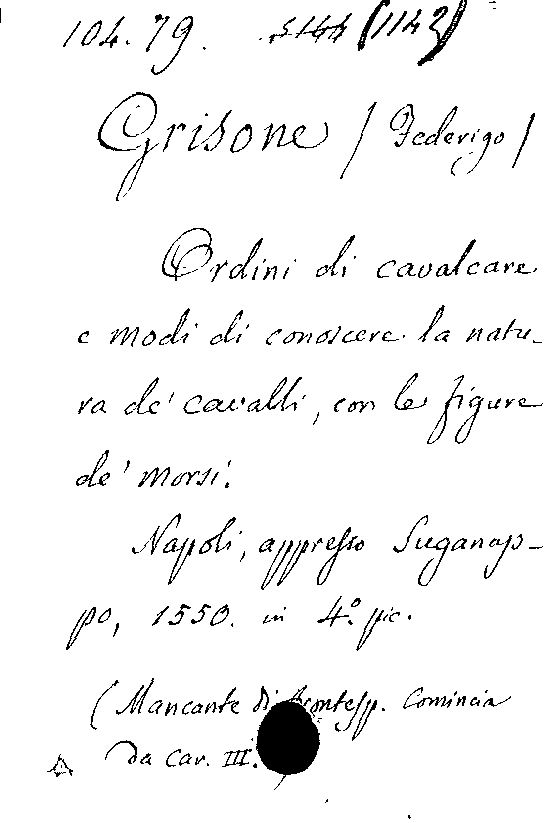 104.79. 5144 (1142)
Grisone / Federigo /
Ordini di cavalcare
e modi di conoscere la natu-
ra de' cavalli, con le figure
de' morsi.
Napoli, appresso Suganap-
po, 1550. in 4º. pic.
(Mancante di frontesp. Comincia
da car. III.